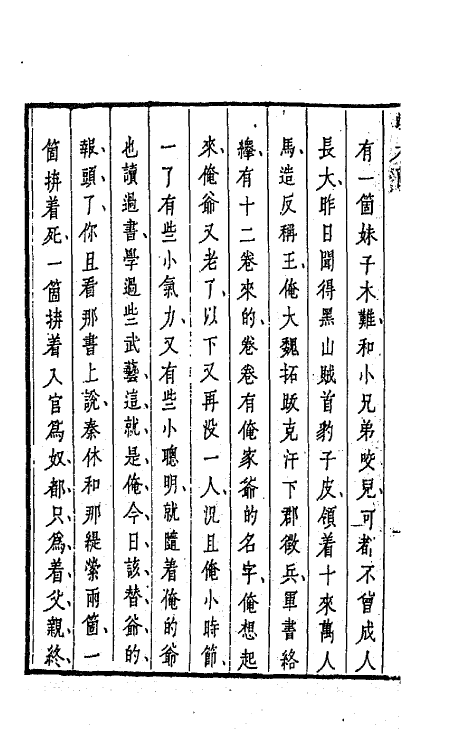 有一箇妹子木難、和小兄弟咬兒、可都不曾成人
長大、昨日聞得黑山賊首豹子皮、領着十來萬人
馬、造反稱王、俺大魏拓跋克汗下郡徵兵、軍書絡
繹、有十二卷來的、卷卷有俺家爺的名字、俺想起
來、俺爺又老了、以下又再没一人、况且俺小時節
一了有些小氣力、又有些小聰明、就隨着俺的爺
也讀過書、學過些武藝、這就是俺今日該替爺的
報頭了、你且看那書上說、秦休和那緹縈兩箇、一
箇拚着死、一箇拚着入官爲奴、都只爲着父親、終